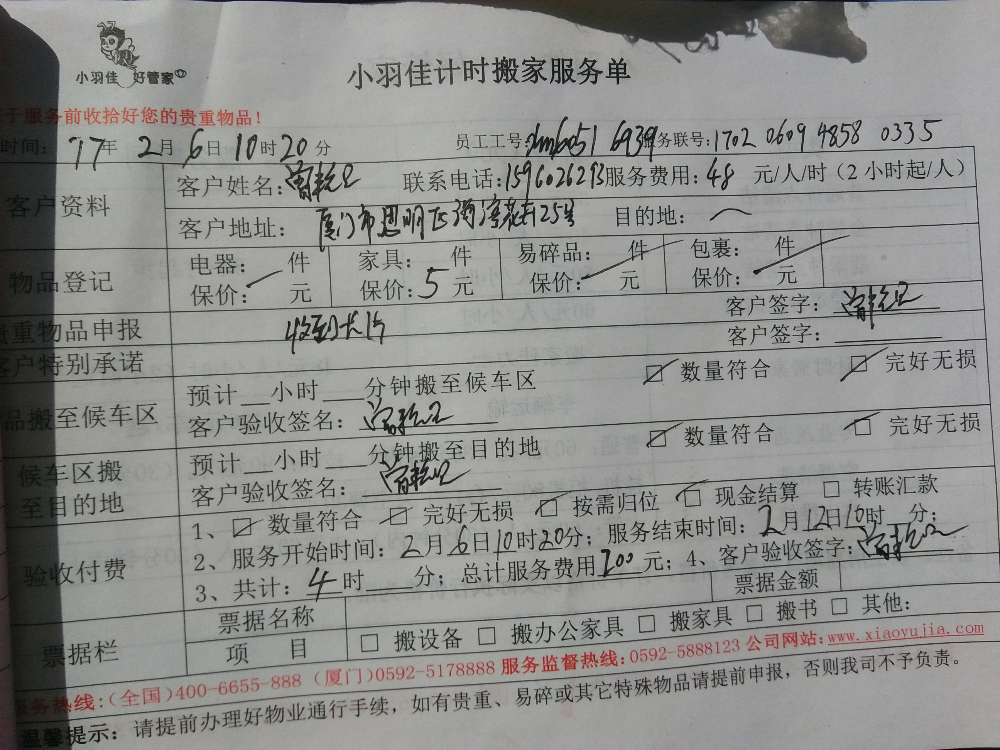 小羽佳 好管家
小羽佳计时搬家服务单
于服务前收拾好您的贵重物品!
时间: 17年 2月 6日 10时 20分 员工工号: 6051 6939 服务联号: 1702 0609 4858 0335
客户资料 客户姓名: 联系电话: 服务费用: 48 元/人/时(2小时起/人)
客户地址: 厦门市思明区 25号 目的地:
物品登记 电器: 件 家具: 件 易碎品: 件 包裹: 件
保价: 元 保价: 5 元 保价: 元 保价: 元
贵重物品申报 收到卡片 客户签字:
客户特别承诺 客户签字:
品搬至候车区 预计 小时 分钟搬至候车区 ☑ 数量符合 ☑ 完好无损
客户验收签名:
候车区搬至目的地 预计 小时 分钟搬至目的地 ☑ 数量符合 ☑ 完好无损
客户验收签名:
验收付费 1、☑ 数量符合 ☑ 完好无损 ☑ 按需归位 ☑ 现金结算 □ 转账汇款
2、服务开始时间: 2月6日10时20分; 服务结束时间: 2月12日10时 分;
3、共计: 4时 分; 总计服务费用 200 元; 4、客户验收签字:
票据栏 票据名称 票据金额
项 目 □ 搬设备 □ 搬办公家具 □ 搬家具 □ 搬书 □ 其他:
服务热线:(全国)400-6655-888 (厦门)0592-5178888 服务监督热线:0592-5888123 公司网站:www.xiaoyujia.com
温馨提示: 请提前办理好物业通行手续,如有贵重、易碎或其它特殊物品请提前申报,否则我司不予负责。